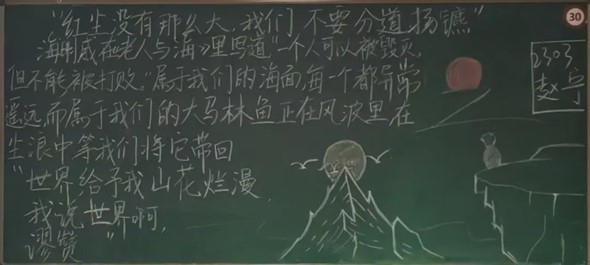 "红尘没有那么大,我们不要分道扬镳"
海明威在《老人与海》里写道"一个人可以被毁灭,
但不能被打败。"属于我们的海面,每一个都异常
遥远,而属于我们的大马林鱼正在风波里,在
生浪中等我们将它带回
"世界给予我山花烂漫,
我说世界啊,
谬赞"
30
2303
赵宁